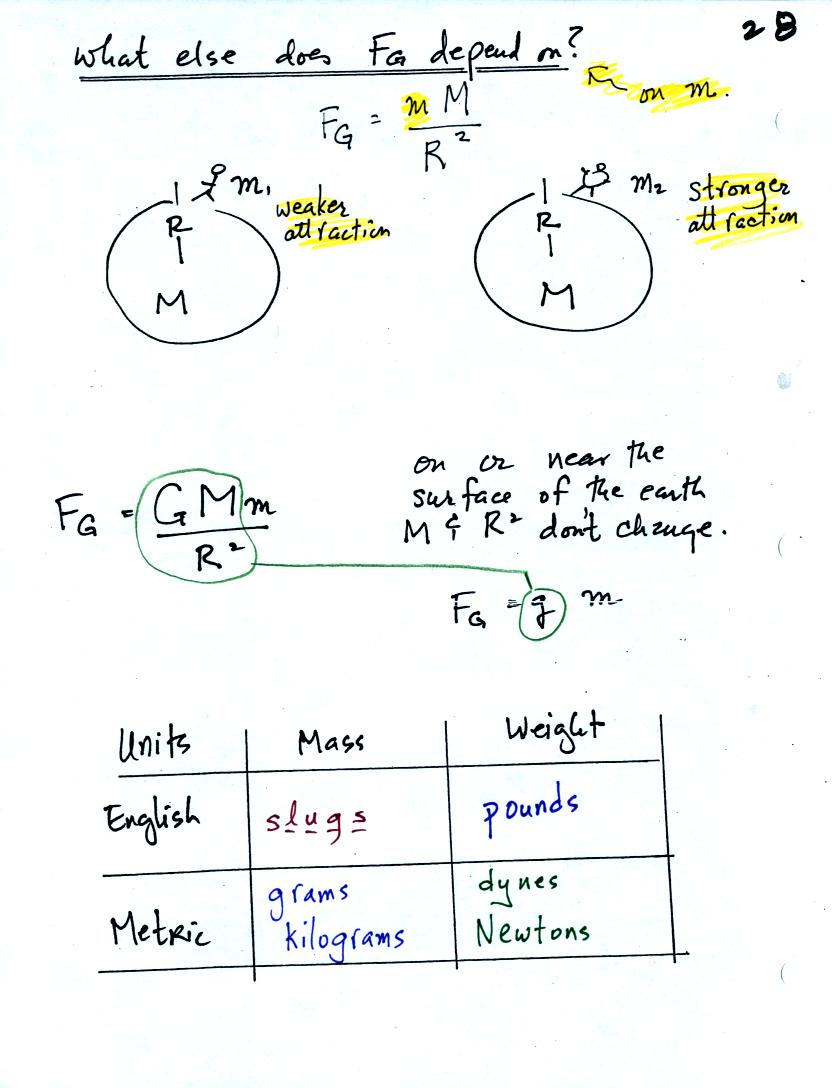 28
What else does FG depend on?
on m.
FG = m M
R²
m₁
weaker
attraction
m₂
stronger
attraction
R
M
R
M
FG = G M m
R²
on or near the
surface of the earth
M & R² don't change.
FG = g m
Units Mass Weight
English slugs pounds
Metric grams dynes
kilograms Newtons